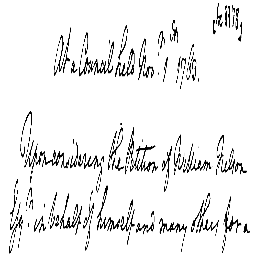 At a Council held Nov.r 7th 1766.
Upon considering the Petition of William Nelson
Esq.r in behalf of himself and many others for a